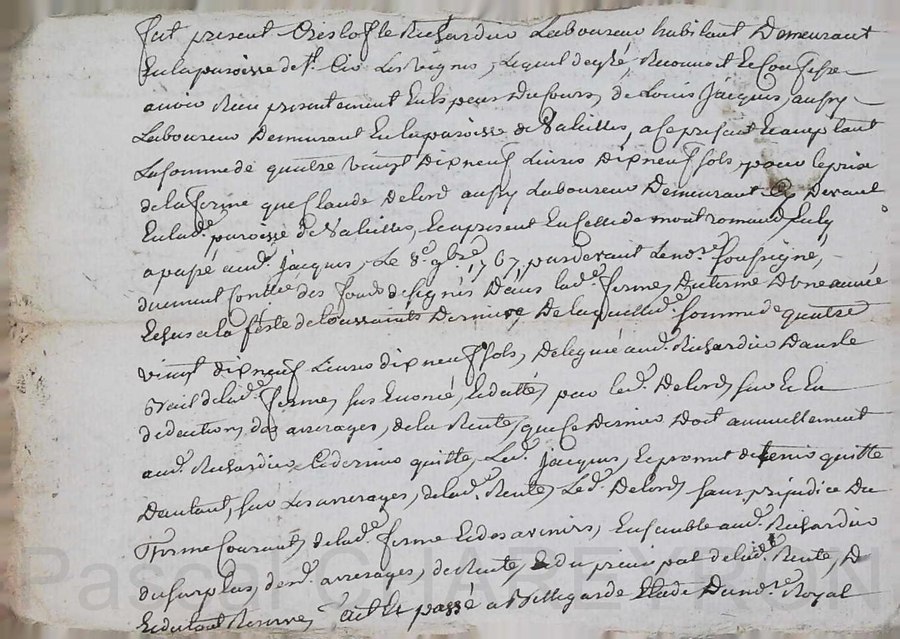 fut present Cristofle Richardier Laboureur habitant Demeurant
En la paroisse de St. Cir Les vignes, Lequel de gré Reconnoit Et Confesse
avoir Reçu presentement En Espeçes Du Cours, de Louis Jacques, aussy
Laboureur Demeurant En la paroisse de Valeilles, a Ce present Ecceptant
La Somme de quattre vingt Dix neuf Livres Dix neuf sols, pour le prix
de la ferme que Claude Delord aussy Laboureur Demeurant Cy Devant
En lad. paroisse de Valeilles, Et a present En Celle de montromand, Luy
a passé aud. Jacques, Le 8e 9bre 1767 pardevant Le nore Soussigné,
duement Conllé des fonds designés Dans lad. ferme, Du terme D'une année
Echus a la feste de toussaints Derniere, De laquelle de Somme de quattre
vingt Dix neuf Livres dix neuf sols, Deleguée aud. Richardier Dans le
Bail de lad. ferme, sus Enoncé, Et datté, par led. Delord, sur Et En
deduction, des arrerages, de la Rente, que Ce Dernier Doit annuellement
aud. Richardier, Ce dernier quitte, Led. Jacques, Et promet de tenir quitte
D'autant, sur Les arrerages, de lad. Rente, Led. Delord, sans prejudice Du
Terme Courant, de lad. ferme Et des avenirs, Ensemble aud. Richardier
du Surplus, desd. arrerages, de Rente, Et du principal de lad. Rente, De
Et du tout Reserve, fait Et passé a Bellegarde Etude Dud. nore Royal
Pascal CHAREYRON